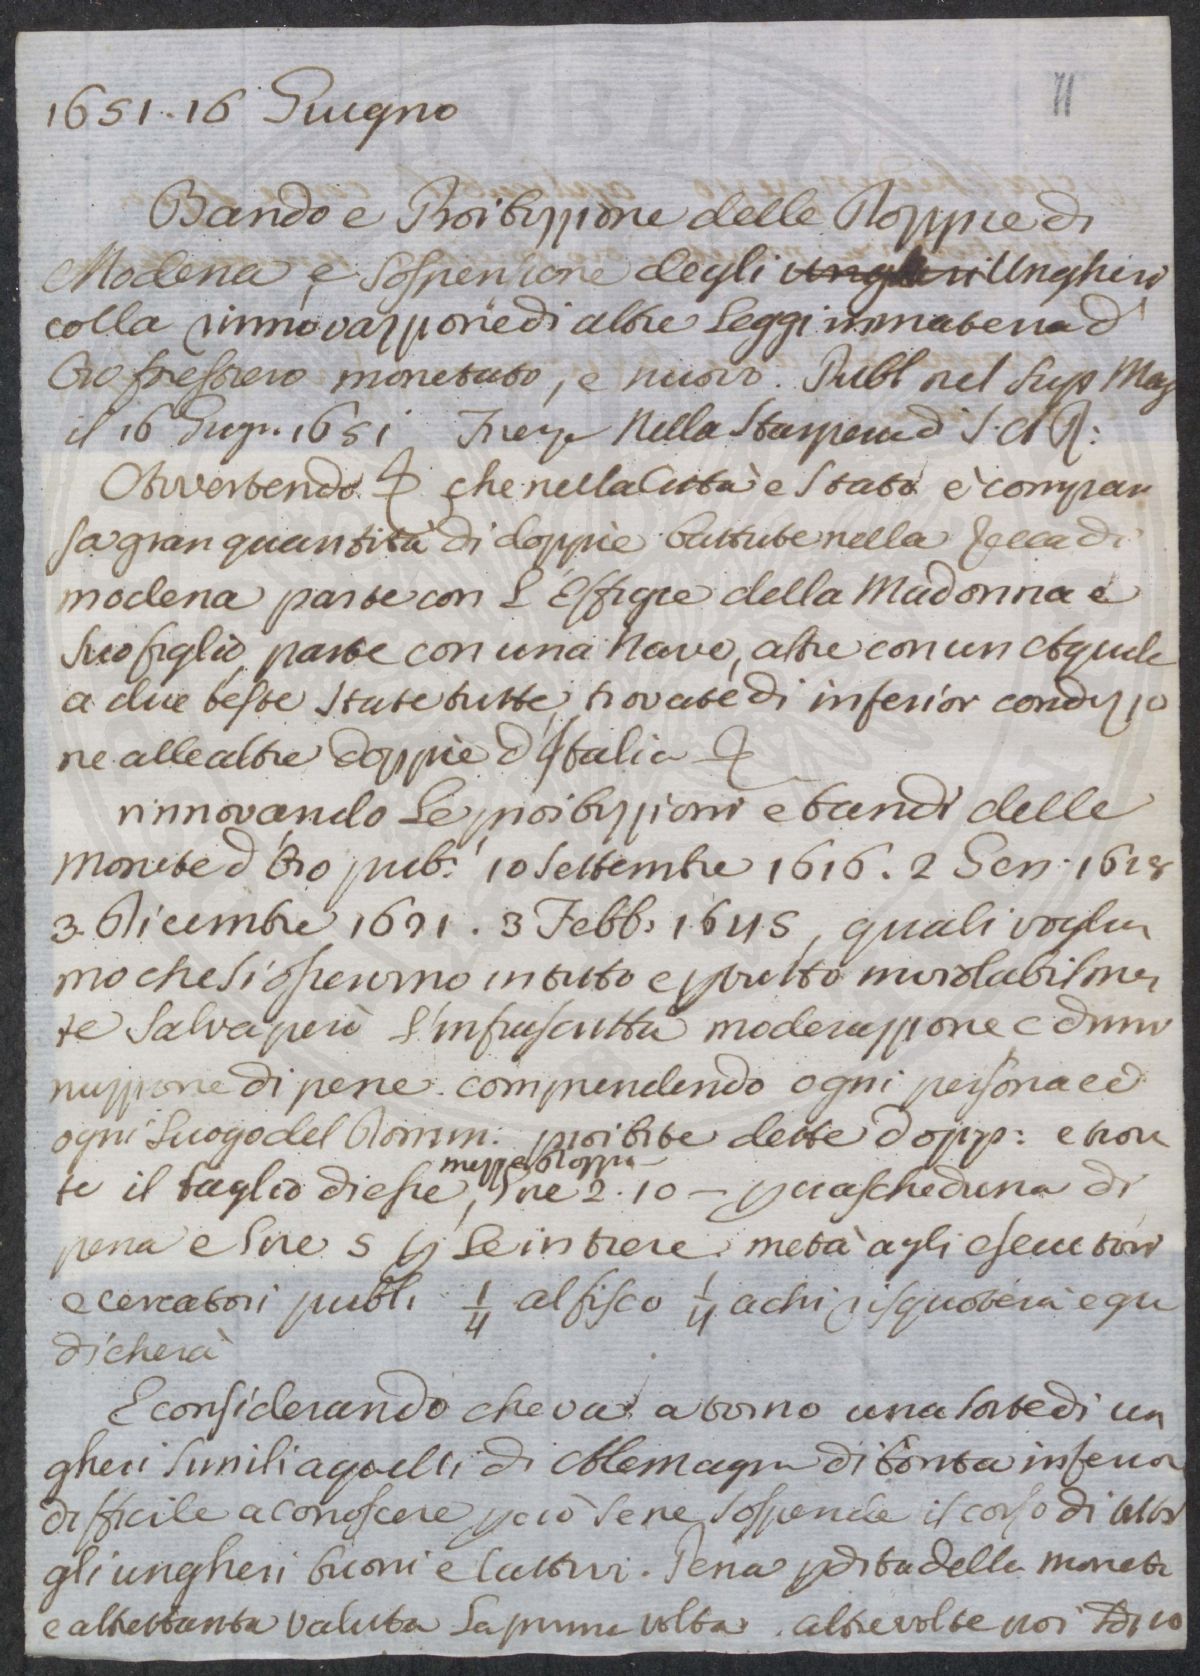 1651. 16 Giugno
Bando e Proibizzione delle Doppie di
Modena, e Sospensione degli Ungheri Ungheri
colla rinnovazzione di altre Leggi in materia d'
Oro forestiero monetato, e nuovo. Publ nel Sup Mag
il 16 Giug. 1651 Firenze Nella Stamperia di S. A
Avvertendo che nella Città e Stato è compar
sa gran quantità di doppie battute nella Zecca di
modena parte con L'Effigie della Madonna e
suo figlio, parte con una Nave, altre con un Aquila
a due teste state tutte trovate di inferior condizzio
ne alle altre doppie d'Italia
rinnovando Le proibizzioni e bandi delle
monete d'Oro pub. 10 Settembre 1616. 2 Gen. 1618
3. Dicembre 1621. 3 Febb. 1645, quali voglia
mo che si osservino in tutto e p tutto inviolabilmen
te salva però l'infrascritta moderazzione e dimi
nuzzione di pene. comprendendo ogni persona ed
ogni Luogo del Domin: proibite dette dopp: e trova
te il taglio di esse, Lire 2. 10 mezza doppia p ciascheduna di
pena e Lire 5 p Le intiere metà agli esecutori
e cercatori publi 1/4 al fisco 1/4 a chi risquoterà e giu
dicherà
E considerando che va atorno una sorte di un
gheri simili a quelli di Alemagna di bontà inferior
difficile a conoscere p ciò se ne sospende il corso di tutti
gli ungheri buoni e cattivi. Pena pdita della moneta
e altrettanta valuta La prima volta. altre volte poi